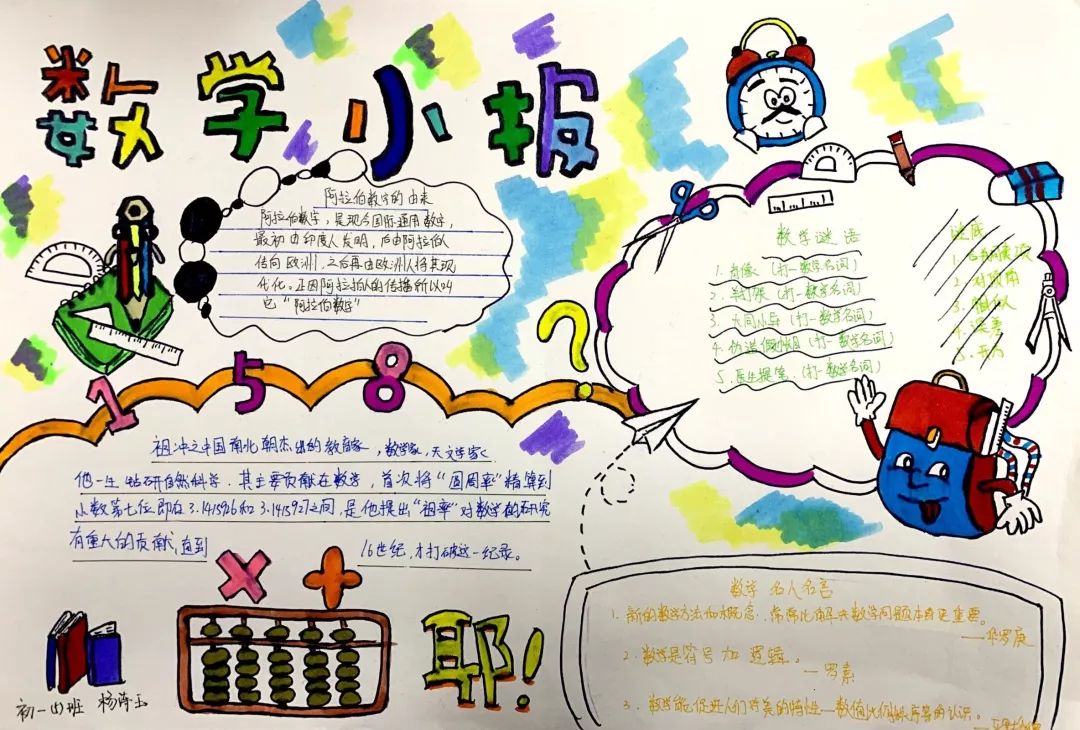 数学小报
阿拉伯数字的由来
阿拉伯数字,是现今国际通用数字,
最初由印度人发明,后由阿拉伯人
传向欧洲,之后再由欧洲人将其现
代化。正因阿拉伯人的传播所以叫
它“阿拉伯数字”
数学谜语
1. 肖像 (打一数学名词)
2. (打一数学名词)
3. 大同小异 (打一数学名词)
4. (打一数学名词)
5. 医生提笔 (打一数学名词)
谜底
1.
2. 对顶角
3. 相似
4. 误差
5. 开方
1 5 8 ?
祖冲之中国南北朝杰出的教育家,数学家,天文学家
他一生钻研自然科学。其主要贡献在数学,首次将“圆周率”精算到
小数第七位即在3.1415926和3.1415927之间,是他提出“祖率”对数学的研究
有重大的贡献,直到 16世纪,才打破这一纪录。
× +
耶!
初一(5)班 杨
数学 名人名言
1. 新的数学方法和概念,常常比解决数学问题本身更重要。
——华罗庚
2. 数学是符号加逻辑。
——罗素
3. 数学能促进人们对美的特性—数值比例秩序等的认识。